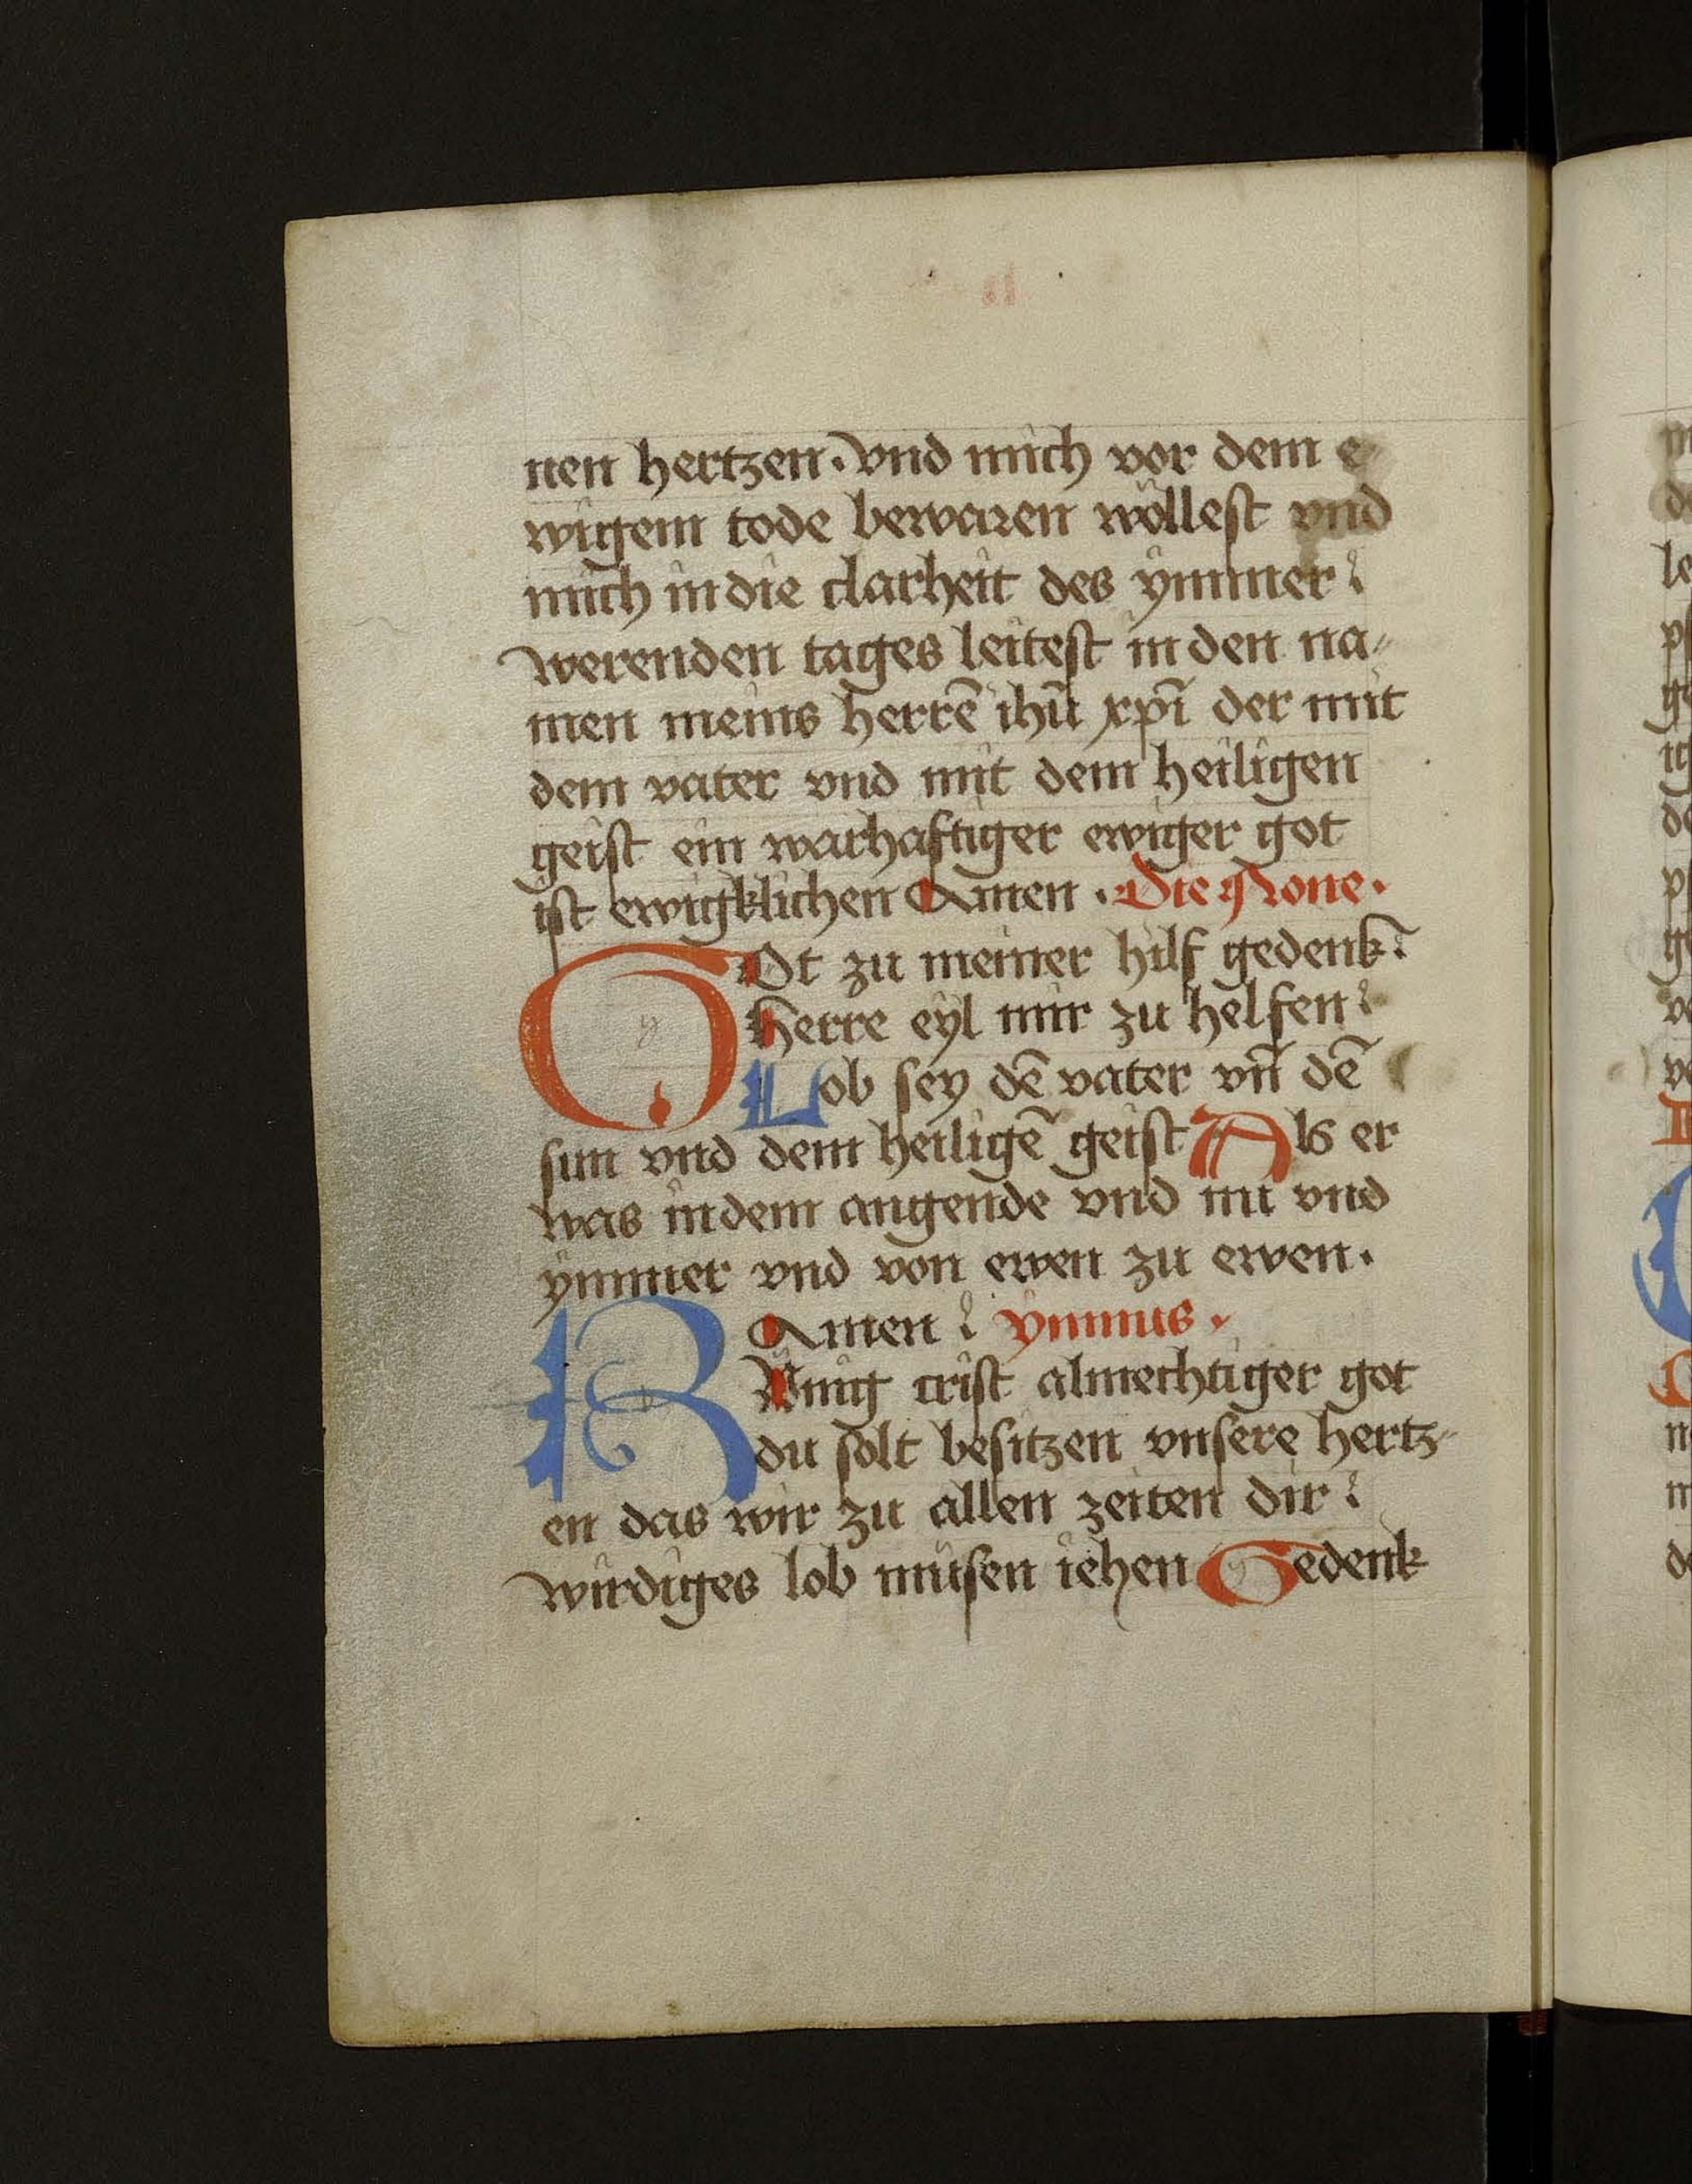 nen hertzen. vnd mich vor dem e
wigem tode bewaren wöllest vnd
mich in die clarheit des ymmer
werenden tages leitest in den na-
men meins herrē ihū xp̄i der mit
dem vater vnd mit dem heiligen
geist ein warhaftiger ewiger got
ist ewigklichen Amen. Die None.
GOt zu meiner hilf gedenk
herre eyl mir zu helfen
Lob sey dē vater vn̄ dē
sun vnd dem heiligē geist Als er
was in dem angende vnd nu vnd
ymmer vnd von ewen zu ewen.
Amen ymnus.
Küng crist almechtiger got
du solt besitzen vnsere hertz-
en das wir zu allen zeiten dir
wirdiges lob müsen iehen Gedenk